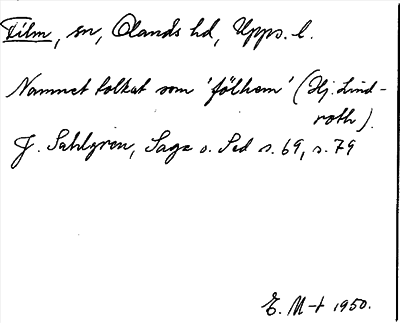 Film, sn, Olands hd, Upps. l.
Namnet tolkat som 'fölhem' (Hj. Lind-
roth).
J. Sahlgren, Saga o. Sed s. 69, s. 79
E. M-t 1950.